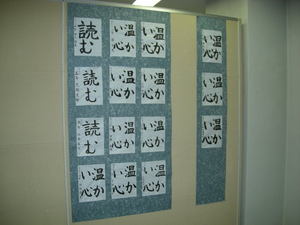 読む
温か
い心
温か
い心
温か
い心
読む
温か
い心
温か
い心
温か
い心
読む
温か
い心
温か
い心
温か
い心
温か
い心
温か
い心
温か
い心